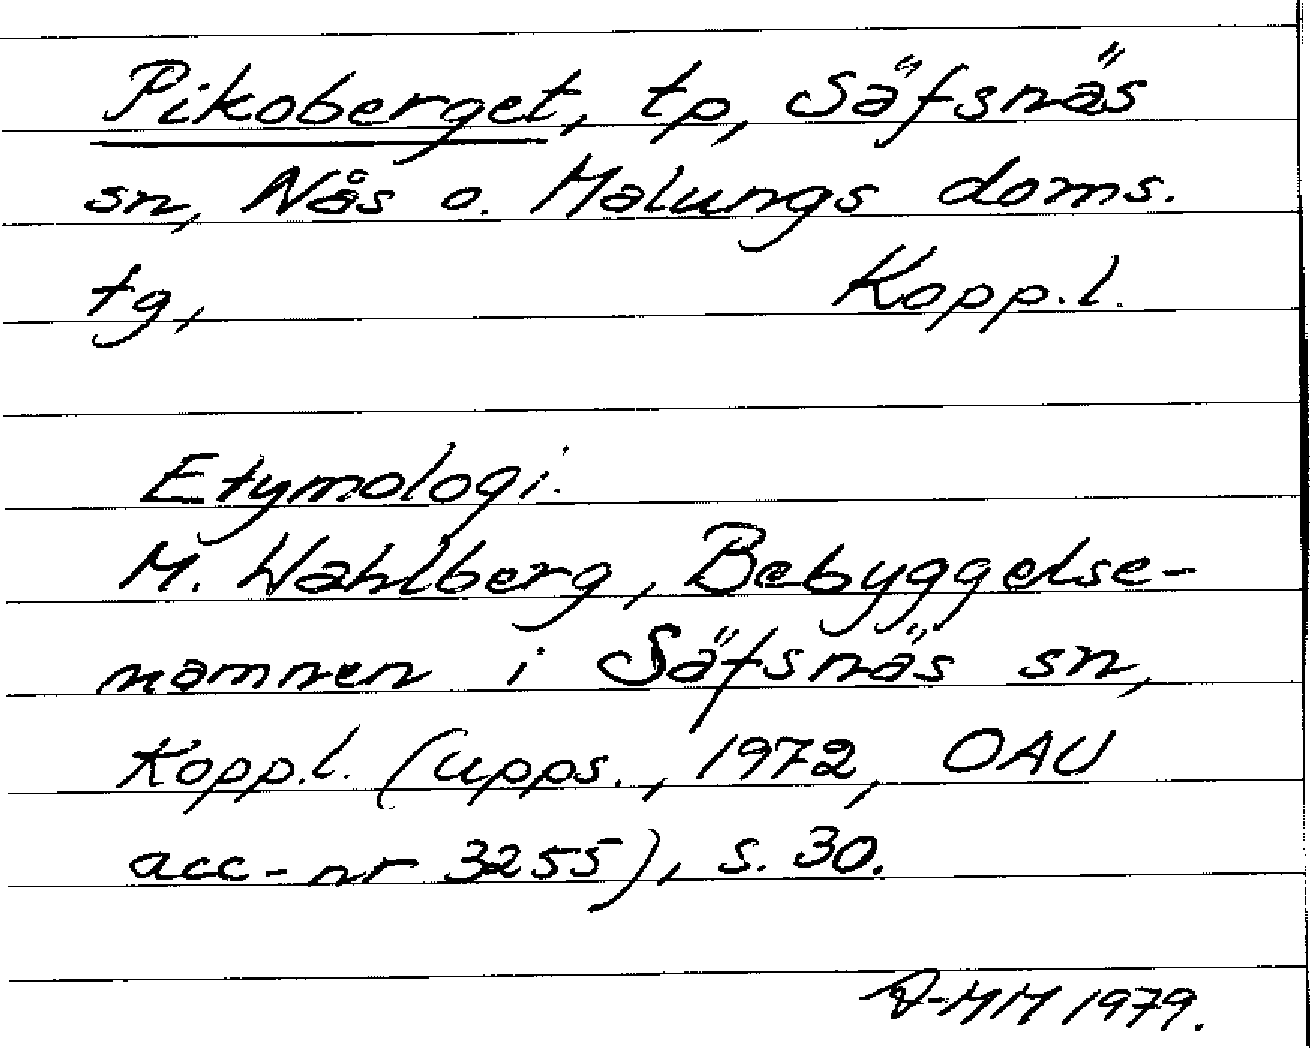 Pikoberget, tp, Säfsnäs
sn, Nås o. Malungs doms.
tg, Kopp.l.
Etymologi.
M. Wahlberg, Bebyggelse-
namnen i Säfsnäs sn,
Kopp.l. (Upps., 1972, OAU
acc-nr 3255), s. 30.
1979.